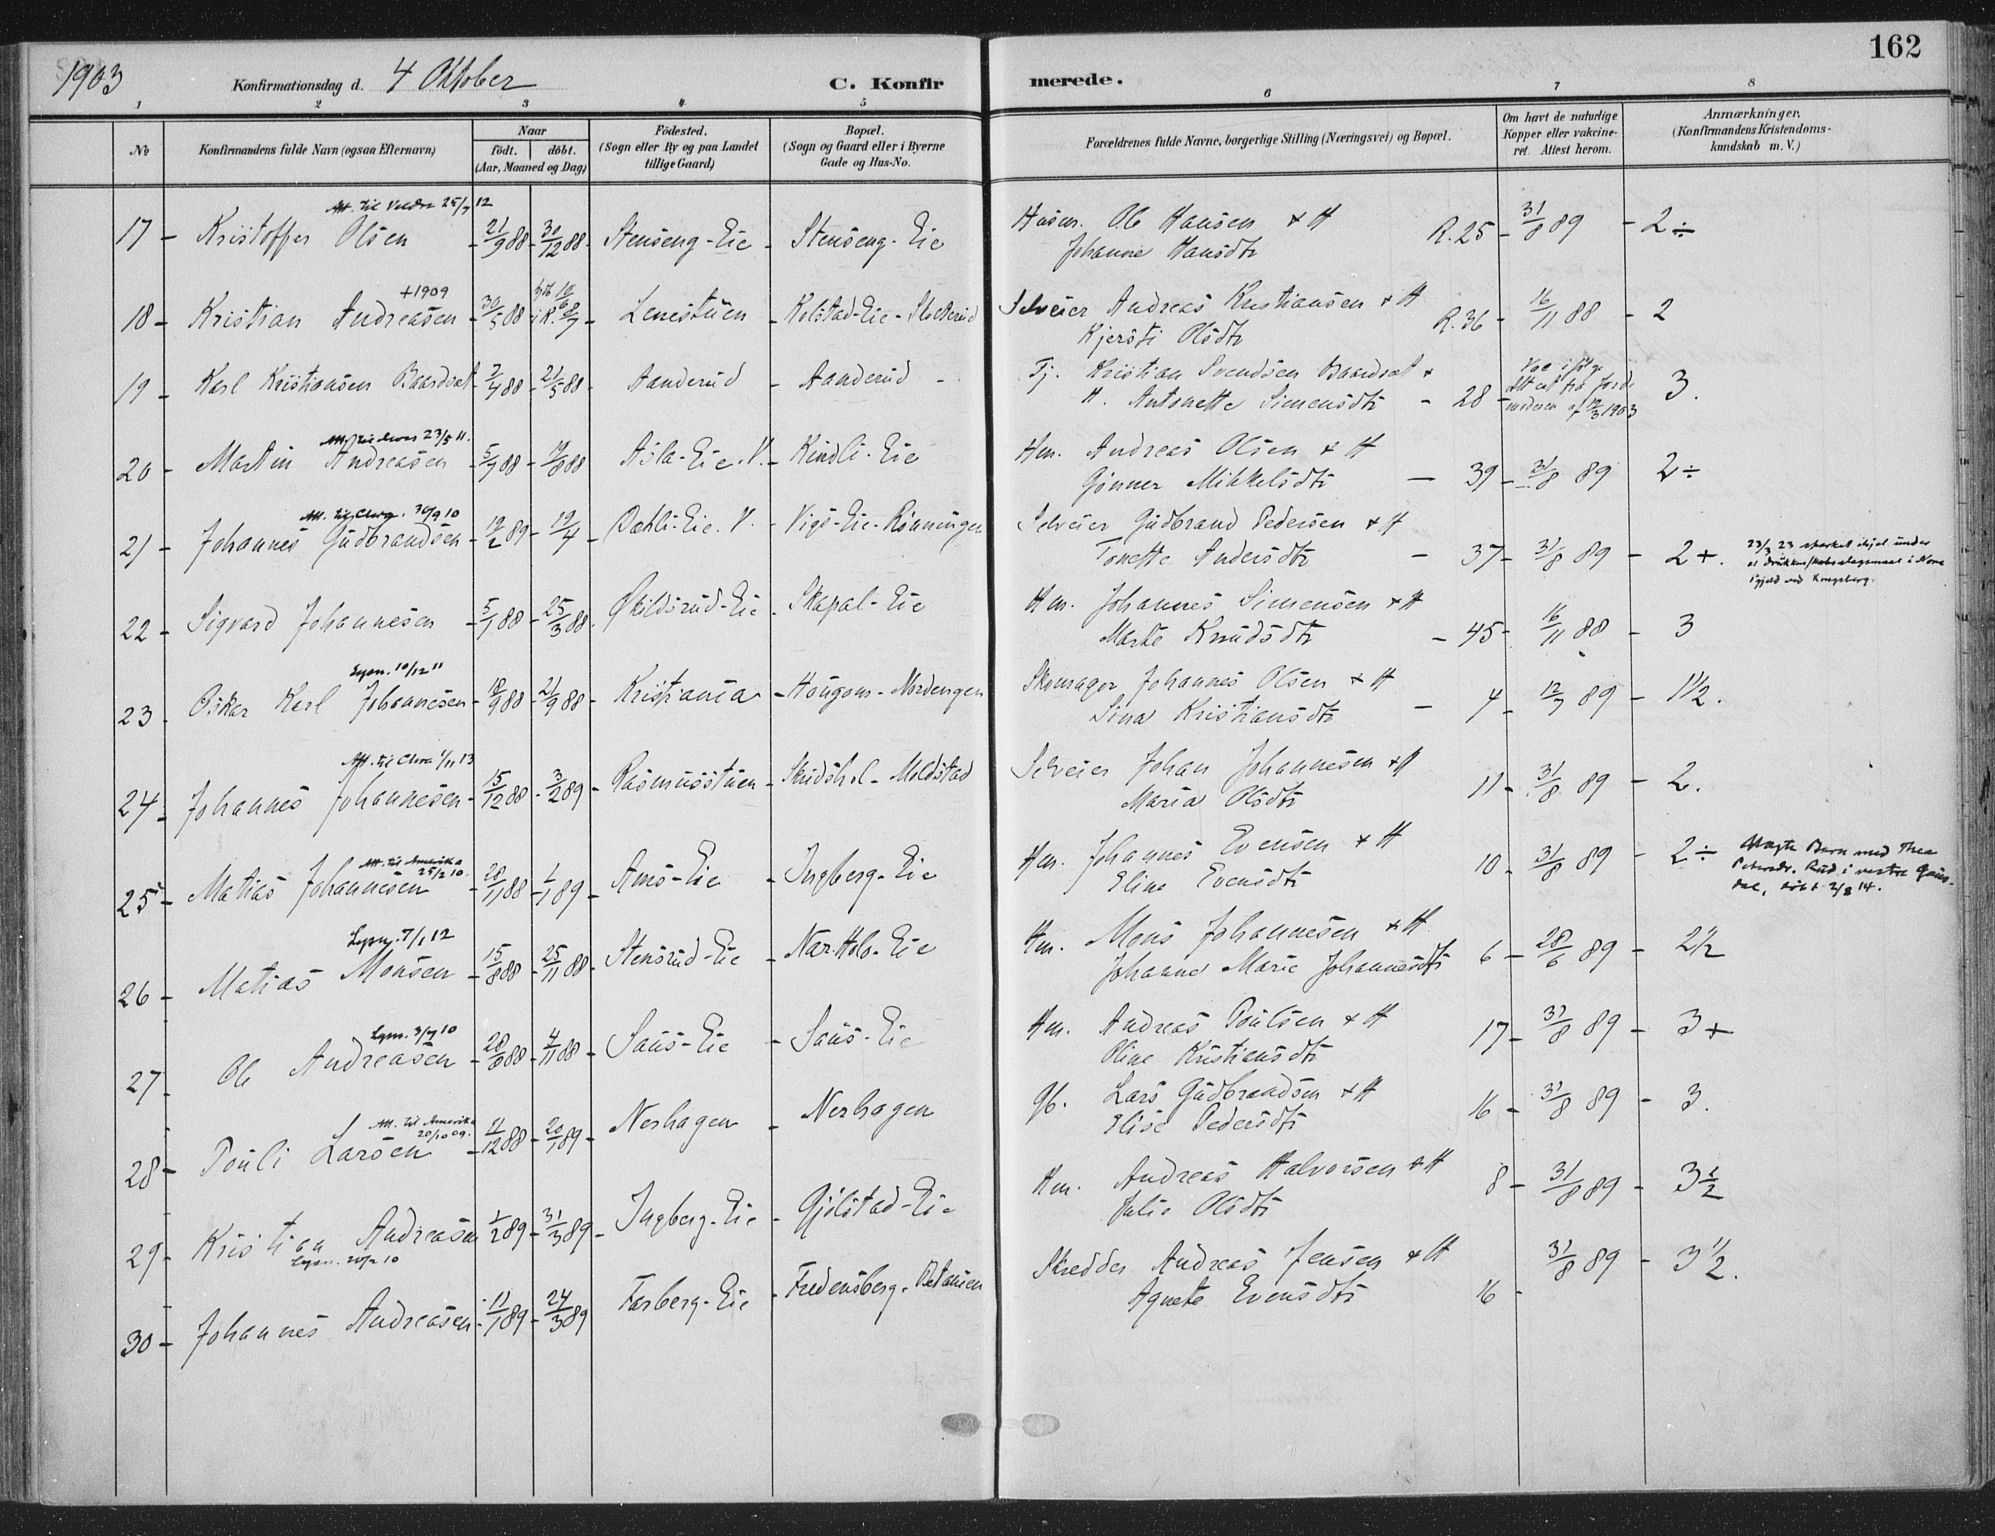 1903 Konfirmationsdag d. 4 Oktober C. Konfirmerede. 162
1 2 3 4 5 6 7 8
No
Konfirmandens fulde Navn (ogsaa Efternavn)
Naar
födt. döbt.
(Aar, Maaned og Dag)
Födested.
(Sogn eller By og paa Landet
tillige Gaard)
Bopæl.
(Sogn og Gaard eller i Byerne
Gade og Hus-No.
Forældrenes fulde Navne, borgerlige Stilling (Næringsvei) og Bopæl.
Om havt de naturlige
Kopper eller vakcine-
ret. Attest herom.
Anmærkninger.
(Konfirmandens Kristendoms-
kundskab m. V.)
Att. til Veldre 25/7 12
17 - Kristoffer Olsen - 21/9 88 - 30/12 88 - Stenseng-Eie - Stenseng-Eie Husm. Ole Hansen & H
Johanne Hansdtr R. 25 - 31/8 89 - 2 ÷
+1909
18 - Kristian Andreasen - 30/5 88 Lenestuen - Kolstad-Eie Selveier Andreas Kristiansen & H
Kjersti Olsdtr R. 36 - 16/11 88 - 2
19 - Karl Kristiansen Baardset - 7/4 88 - 21/5 88 - Aanderud - Aanderud - Tj. Kristian Svendsen Baardset &
H. Antonette Simensdtr - 28 - 3.
Vac. ifölge
Attest fra Jorde
moderen af 12/3 1903
Att. til 23/5 11.
20 - Martin Andreasen - 5/7 88 - 19/8 88 - Asla-Eie. V. - Kindli-Eie Hm. Andreas Olsen & H
Gönner Mikkelsdtr - 39 - 31/8 89 - 2 ÷
Att. til Chra. 30/9 10
21 - Johannes Gudbrandsen - 19/2 89 - 19/4 - Dæhli-Eie. V. - Vigs-Eie-Rönningen Selveier Gudbrand Pedersen & H
Tonette Andersdtr - 37 - 31/8 89 - 2 +.
23/3 23 ihjel under
et i Nore
Pgjeld ved Kongsberg.
22 - Sigvard Johannesen - 5/1 88 - 25/3 88. Økildsrud-Eie - Skapal-Eie Hm. Johannes Simensen & H
Marte Knudsdtr - 45 - 16/11 88 - 3
Lysn. 10/12 11
23 - Oskar Karl Johannesen - 18/9 88 - 21/9 88 - Kristiania - Hougom-Nordengen Skomager Johannes Olsen & H
Sina Kristiansdtr - 4 - 12/7 89 - 1 1/2.
Att. til Chra 1/11 13
24 - Johannes Johannesen - 15/12 88 - 3/2 89 - Rasmusstuen - Skudshol-Moldstad Selveier Johan Johannesen & H
Maria Olsdtr 11 - 31/8 89 - 2.
Att. til Amerika
25/2 10.
25 - Matias Johannesen - 28/11 88 - 1/1 89 - Ams-Eie - Ingberg-Eie Hm. Johannes Evensen & H
Eline Evensdtr 10 - 31/8 89 - 2 ÷
Uægte Barn med Thea
Petersdr. Rud i vestre Gaus-
dal, döbt 2/8 14.
Lysn. 7/1 12
26 - Matias Monsen - 15/8 88 - 25/11 88 - Stensrud-Eie - Nær-Hols-Eie Hm. Mons Johannesen & H
Johanne Marie Johannesdtr 6 - 28/6 89 - 2 1/2
Lysn. 3/7 10
27 - Ole Andreasen - 28/8 88 - 4/11 88 - Saus-Eie - Saus-Eie Hm. Andreas Poulsen & H
Oline Kristiansdtr 17 - 31/8 89 - 3 +
Att. til Amerika
20/10 09.
28 - Pouli Larsen - 11/12 88 - 20/1 89 - Neshagen - Neshagen Gb. Lars Gudbrandsen & H
Elise Pedersdtr 16 - 31/8 89 - 3.
29 - Kristian Andreasen 1/2 89 - 31/3 89 - Ingberg-Eie - Gjölstad-Eie Hm. Andreas Halvorsen & H
Julie Olsdtr 8 - 31/8 89 - 3 1/2
Lysn. 20/2 10
30 - Johannes Andreasen - 11/1 89 - 24/3 89 Farberg-Eie - Fredensberg Skredder Andreas Jensen & H
Agnete Evensdtr 16 - 31/8 89 - 3 1/2.